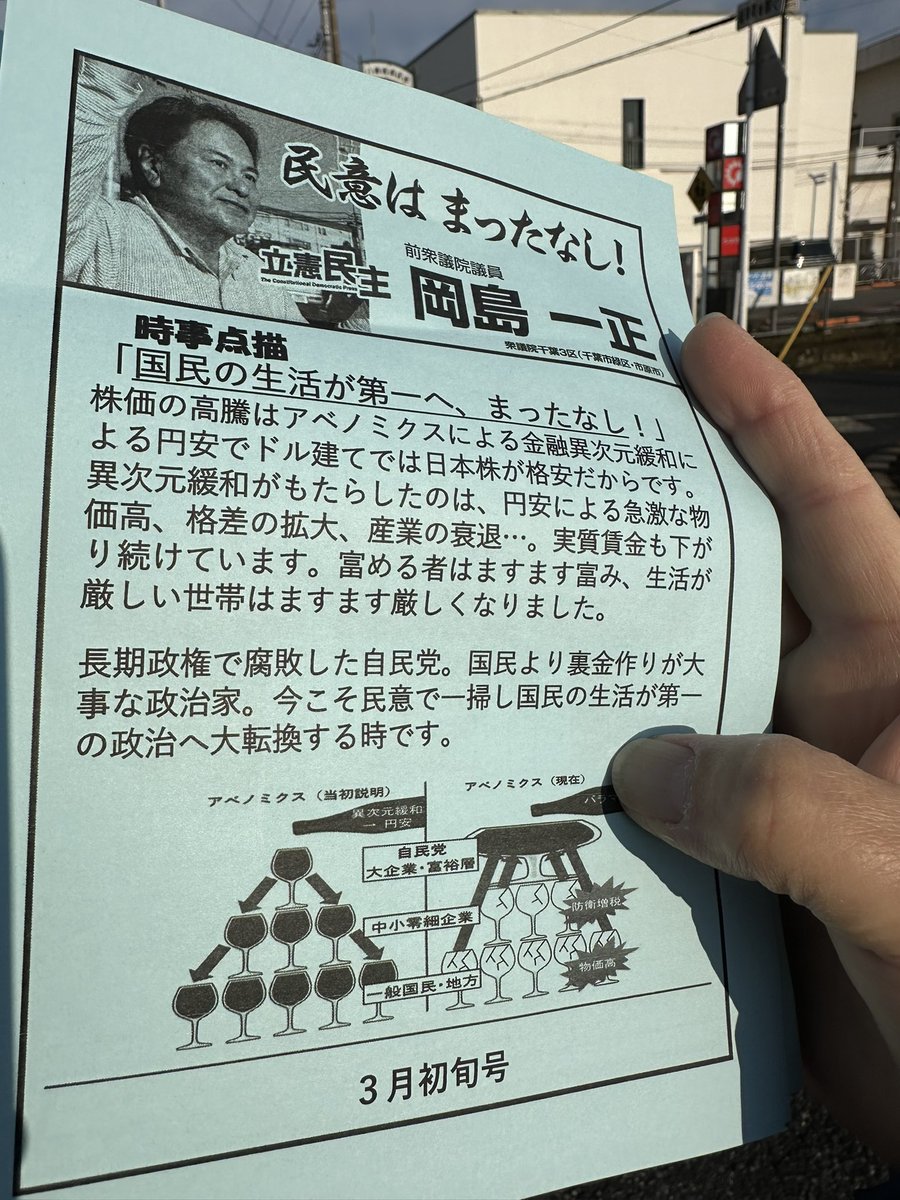 民意は まったなし!
立憲民主
The Constitutional Democratic Press
前衆議院議員
岡島 一正
衆議院千葉3区(千葉市緑区・市原市)
時事点描
「国民の生活が第一へ、まったなし!」
株価の高騰はアベノミクスによる金融異次元緩和に
よる円安でドル建てでは日本株が格安だからです。
異次元緩和がもたらしたのは、円安による急激な物
価高、格差の拡大、産業の衰退…。実質賃金も下が
り続けています。富める者はますます富み、生活が
厳しい世帯はますます厳しくなりました。
長期政権で腐敗した自民党。国民より裏金作りが大
事な政治家。今こそ民意で一掃し国民の生活が第一
の政治へ大転換する時です。
アベノミクス(当初説明)
異次元緩和
→ 円安
アベノミクス(現在)
自民党
大企業・富裕層
中小零細企業
一般国民・地方
防衛増税
物価高
3月初旬号